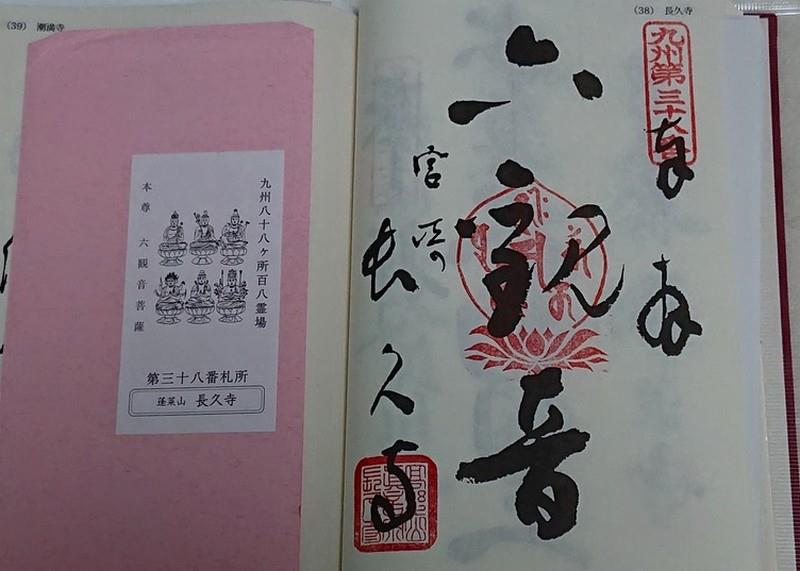 (38) 長久寺
奉拝
六観音
宮崎
長久寺
(39) 潮満寺
九州八十八ヶ所百八霊場
本尊 六観音菩薩
第三十八番札所
蓬莱山 長久寺